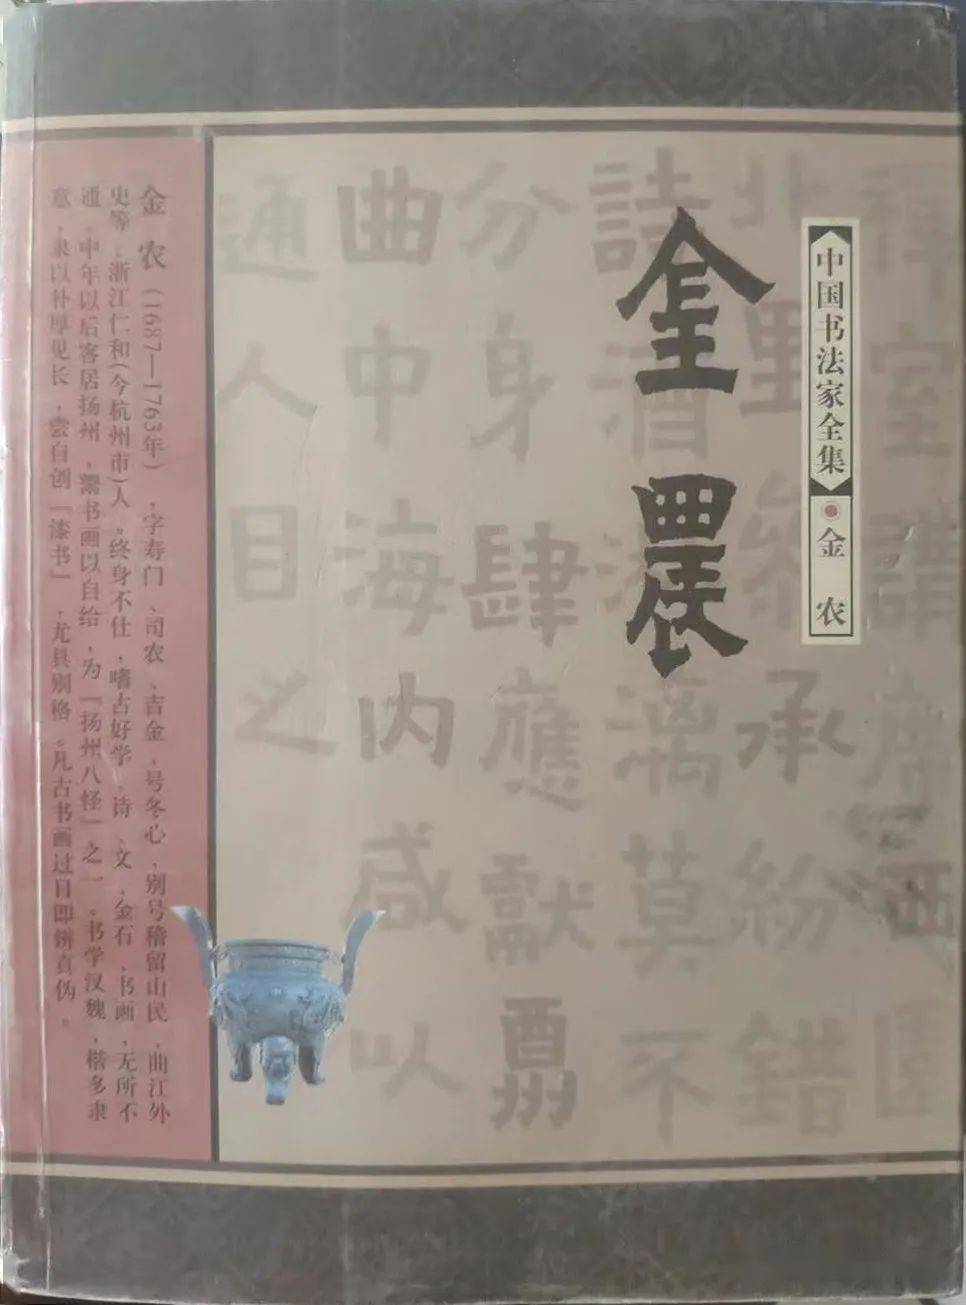 中国书法家全集 金农
金農
禅室講席西園
北 承紛錯
詩酒淋漓莫不
分身肆應獻酬
曲中海内咸以
通人目之
金农（1687—1763年），字寿门、司农、吉金，号冬心，别号稽留山民、曲江外
史等，浙江仁和(今杭州市)人，终身不仕，嗜古好学，诗、文、金石、书画，无所不
通。中年以后客居扬州，鬻书画以自给，为『扬州八怪』之一。书学汉魏，楷多隶
意，隶以朴厚见长，尝自创『漆书』，尤具别格。凡古书画过目即辨真伪。